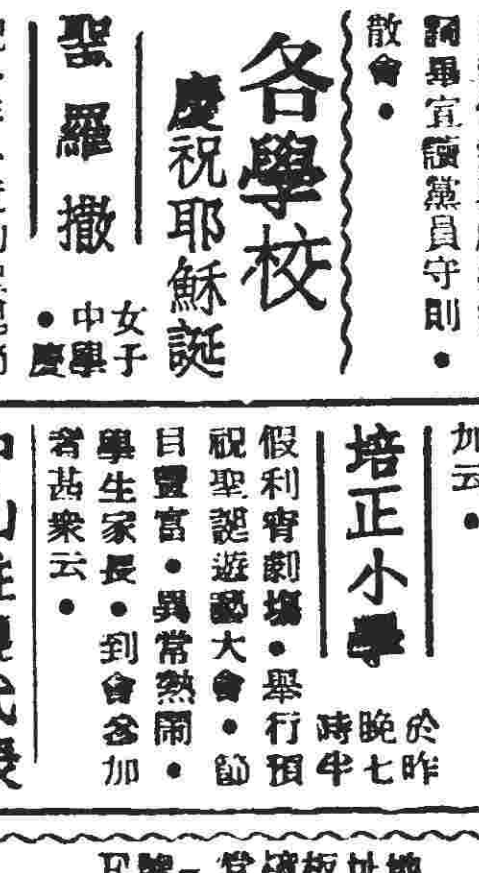 詞畢宣讀黨員守則●
散會●
各學校
慶祝耶穌誕
聖羅撒
女子
中學
●慶
加云●
培正小學
於昨
晚七
時半
假利宵劇場●舉行預
祝聖誕遊藝大會●節
目豐富●異常熱鬧●
學生家長●到會參加
者甚衆云●